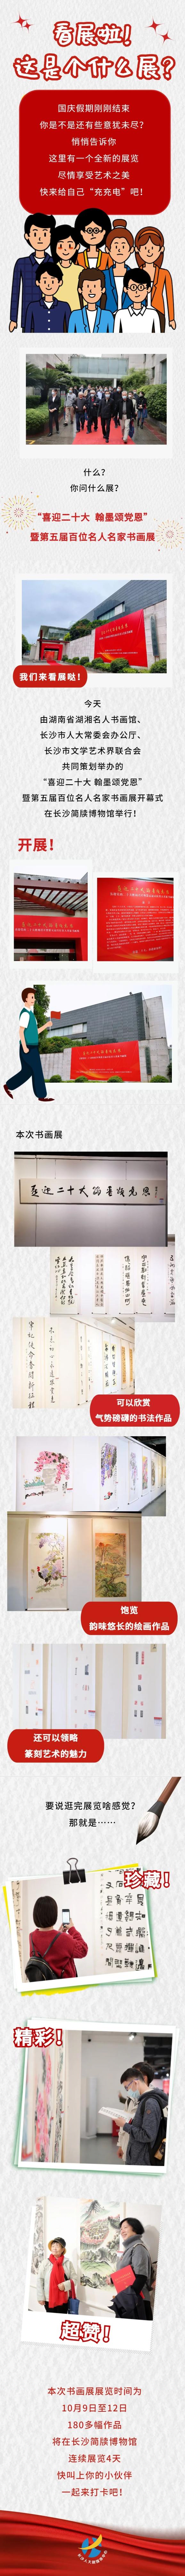 看展啦！
这是个什么展？
国庆假期刚刚结束
你是不是还有些意犹未尽？
悄悄告诉你
这里有一个全新的展览
尽情享受艺术之美
快来给自己“充充电”吧！
什么？
你问什么展？
“喜迎二十大 翰墨颂党恩”
暨第五届百位名人名家书画展
我们来看展哒！
今天
由湖南省湖湘名人书画馆、
长沙市人大常委会办公厅、
长沙市文学艺术界联合会
共同策划举办的
“喜迎二十大 翰墨颂党恩”
暨第五届百位名人名家书画展开幕式
在长沙简牍博物馆举行！
开展！
本次书画展
喜迎二十大翰墨颂党恩
可以欣赏
气势磅礴的书法作品
饱览
韵味悠长的绘画作品
还可以领略
篆刻艺术的魅力
要说逛完展览啥感觉？
那就是……
珍藏！
精彩！
超赞！
本次书画展展览时间为
10月9日至12日
180多幅作品
将在长沙简牍博物馆
连续展览4天
快叫上你的小伙伴
一起来打卡吧！